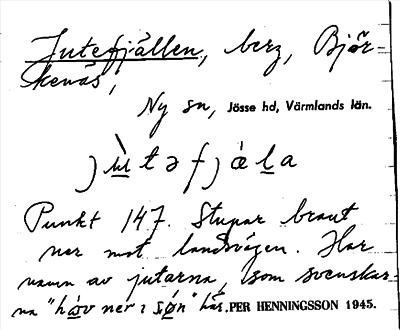 Jutefjällen, berg, Björ-
kenäs,
Ny sn, Jösse hd, Värmlands län.
jùtəfjála
Punkt 147. Stupar brant
ner mot landsvägen. Har
namn av jutarna, som svenskar-
na "høv ner i søn" här. PER HENNINGSSON 1945.